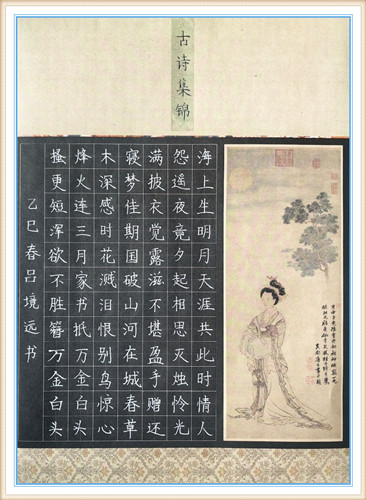 古诗集锦
海上生明月天涯共此时情人
怨遥夜竟夕起相思灭烛怜光
满披衣觉露滋不堪盈手赠还
寝梦佳期国破山河在城春草
木深感时花溅泪恨别鸟惊心
烽火连三月家书抵万金白头
搔更短浑欲不胜簪万金白头
乙巳春吕境远书